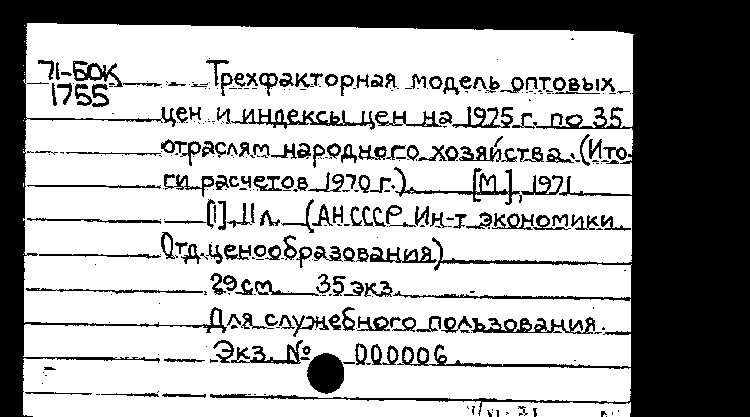 71-БОК
1755
Трехфакторная модель оптовых
цен и индексы цен на 1975 г. по 35
отраслям народного хозяйства. (Ито-
ги расчетов 1970 г.). [М.], 1971.
[1], 11 л. (АН СССР. Ин-т экономики.
Отд. ценообразования).
29 см. 35 экз.
Для служебного пользования.
Экз. № 000006.